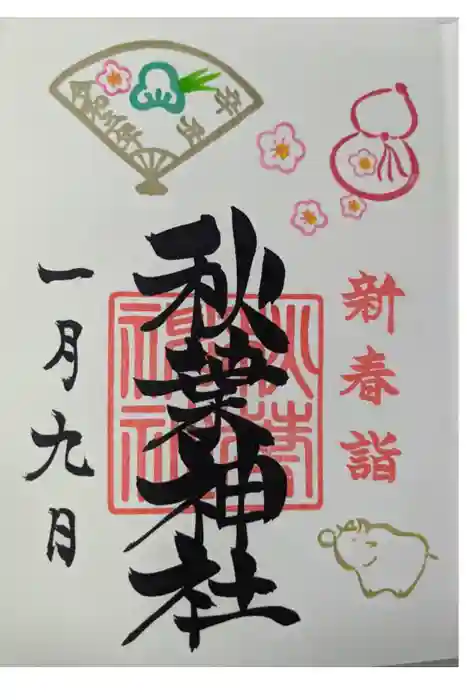 辛丑
令和三年
新春詣
秋葉神社
秋葉
神社
一月九日